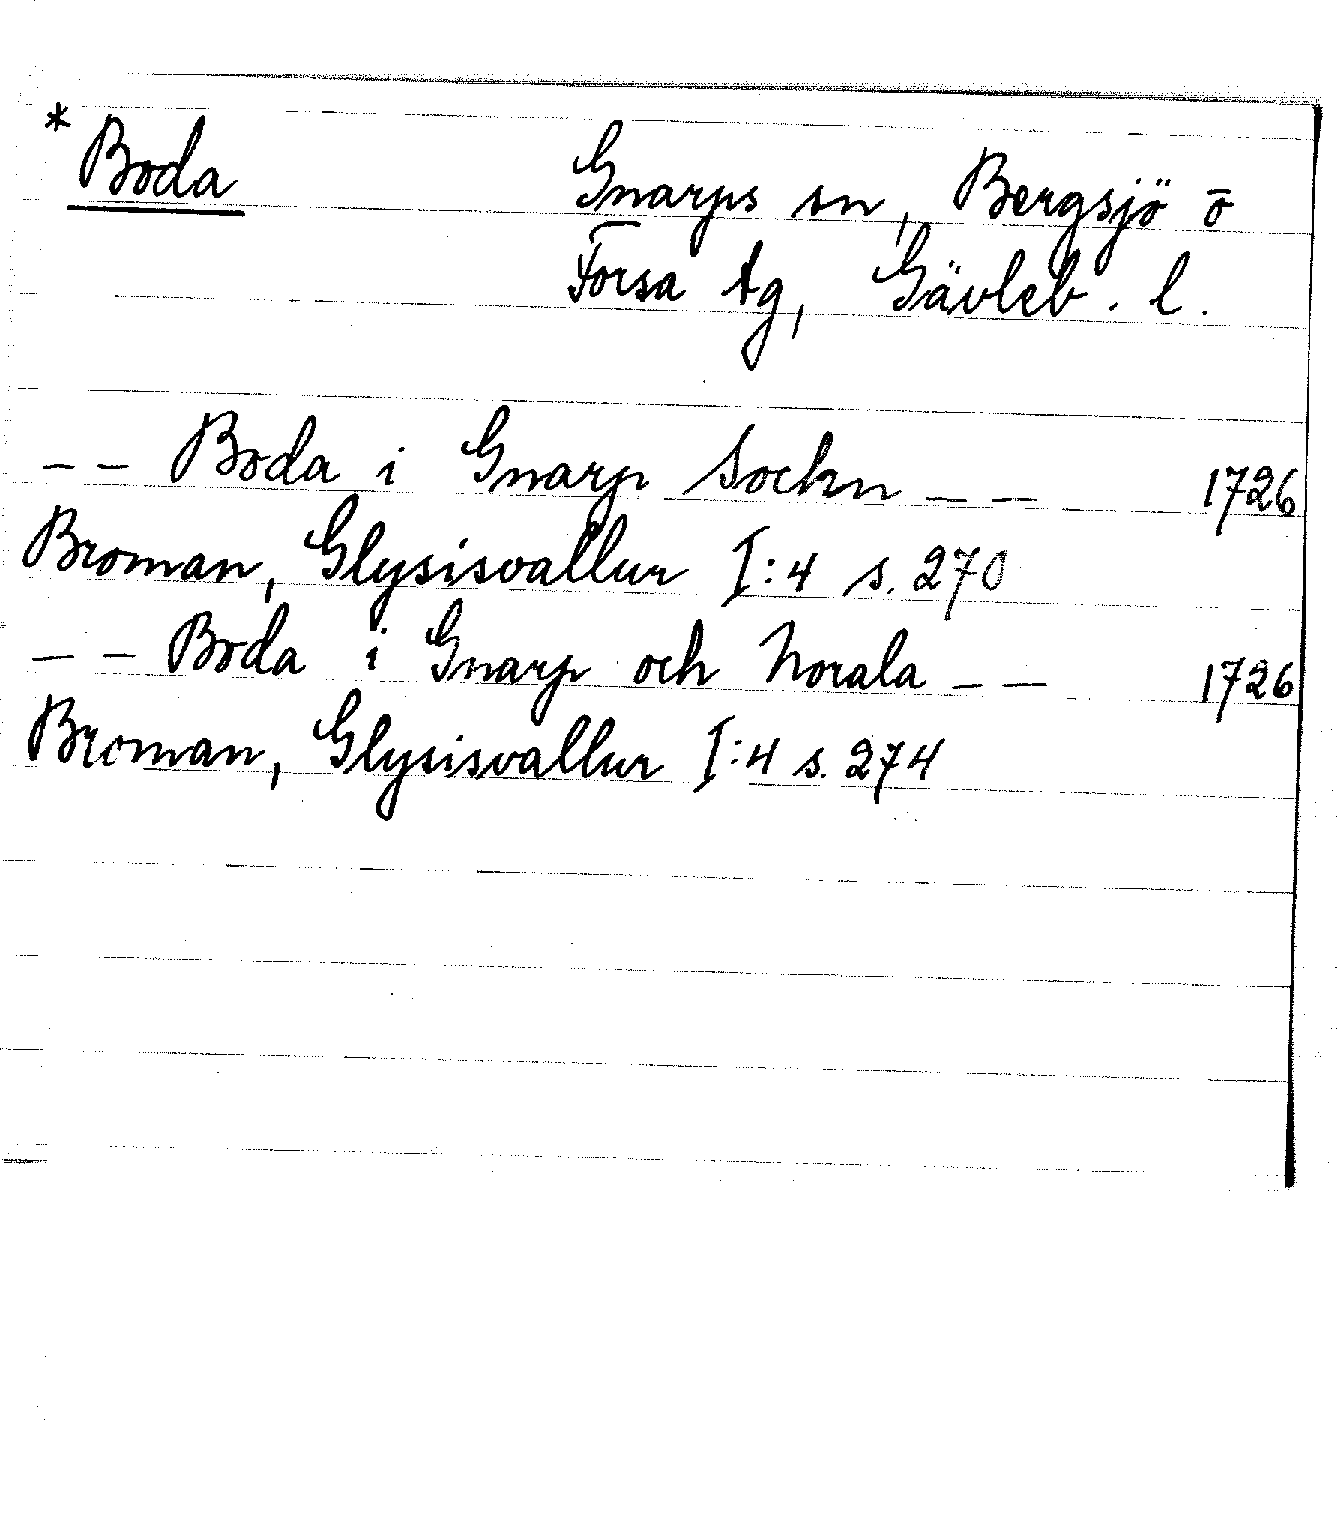 * Boda Gnarps sn, Bergsjö o̅
Forsa tg, Gävleb. l.
-- Boda i Gnarp Sockn -- 1726
Broman, Glysisvallur I:4 s. 270
-- Boda i Gnarp och Norala -- 1726
Broman, Glysisvallur I:4 s. 274